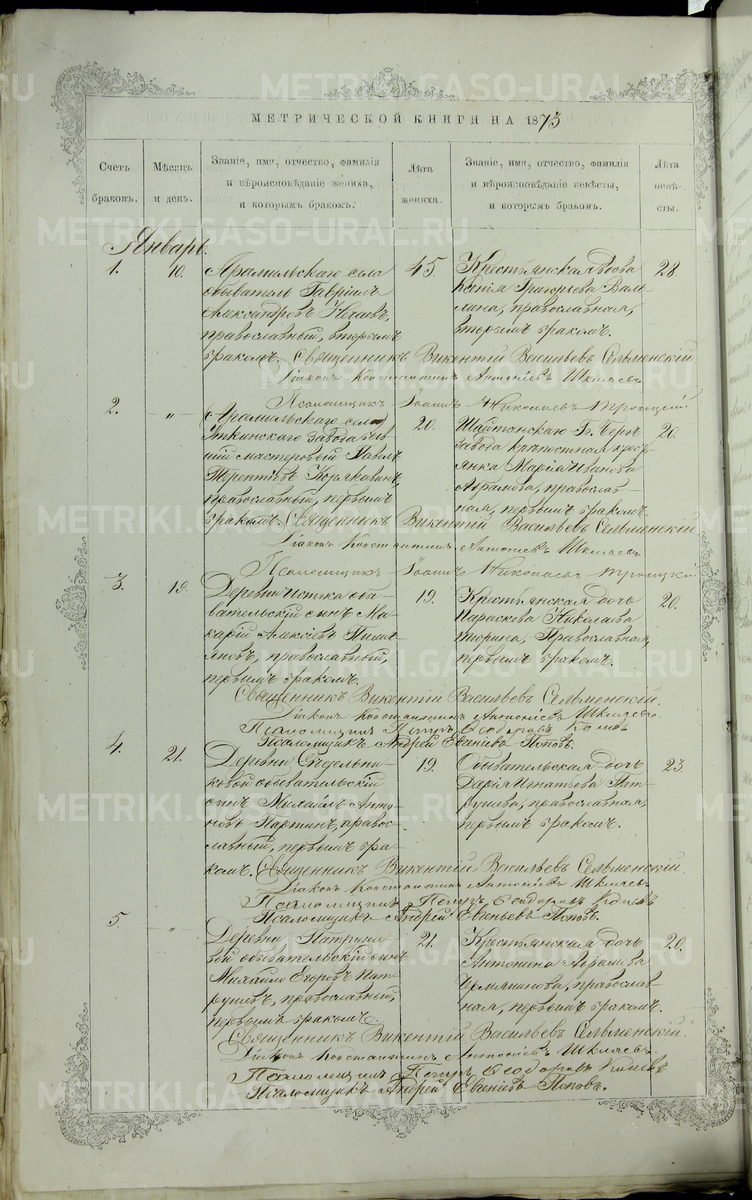 МЕТРИЧЕСКОЙ КНИГИ НА 1873
Счетъ браковъ.
Мѣсяцъ и день.
Званіе, имя, отчество, фамилія
и вѣроисповѣданіе жениха,
и которымъ бракомъ.
Лѣта жениха.
Званіе, имя, отчество, фамилія
и вѣроисповѣданіе невѣсты,
и которымъ бракомъ.
Лѣта невѣсты.
Январь.
1.
10.
Арамильскаго села
обыватель Гавріилъ
Александровъ
православный, вторымъ
бракомъ.
45.
Крестьянская вдова
Григорьева
православная,
вторымъ бракомъ.
28
Священникъ Викентій Васильевъ Сельменскій
Діаконъ Константинъ Антоніевъ Шкляевъ
Псаломщикъ Іоаннъ Николаевъ Троицкій
2.
"
Арамильскаго села
завода
мастеровой Павелъ
Терентьевъ Корякинъ,
православный, первымъ
бракомъ.
20.
Шайтанскаго
завода крестьянка
Марія Иванова
Абрамова, православная,
первымъ бракомъ.
20.
Священникъ Викентій Васильевъ Сельменскій
Діаконъ Константинъ Антоніевъ Шкляевъ
Псаломщикъ Іоаннъ Николаевъ Троицкій
3.
19.
Деревни Истока обывательскій
сынъ Макарій
Алексіевъ
православный,
первымъ бракомъ.
19.
Крестьянская дочь
Параскева Николаева
православная,
первымъ бракомъ.
20.
Священникъ Викентій Васильевъ Сельменскій.
Діаконъ Константинъ Антоніевъ Шкляевъ.
Псаломщикъ Петръ Ѳеодоровъ
Псаломщикъ Андрей Евгеніевъ Поповъ.
4.
21.
Деревни
обывательскій
сынъ Михаилъ Антоновъ
Партинъ, православный,
первымъ бракомъ.
19.
Обывательская дочь
Дарія Игнатьева Патрушева,
православная,
первымъ бракомъ.
23.
Священникъ Викентій Васильевъ Сельменскій.
Діаконъ Константинъ Антоніевъ Шкляевъ
Псаломщикъ Петръ Ѳеодоровъ
Псаломщикъ Андрей Евгеніевъ Поповъ.
5.
"
Деревни
обывательскій сынъ
Михаило Егоровъ Патрушевъ,
православный,
первымъ бракомъ.
21.
Крестьянская дочь
Антонина Абрамова
православная,
первымъ бракомъ.
20.
Священникъ Викентій Васильевъ Сельменскій.
Діаконъ Константинъ Антоніевъ Шкляевъ.
Псаломщикъ Петръ Ѳеодоровъ
Псаломщикъ Андрей Евгеніевъ Поповъ.
METRIKI.GASO-URAL.RU